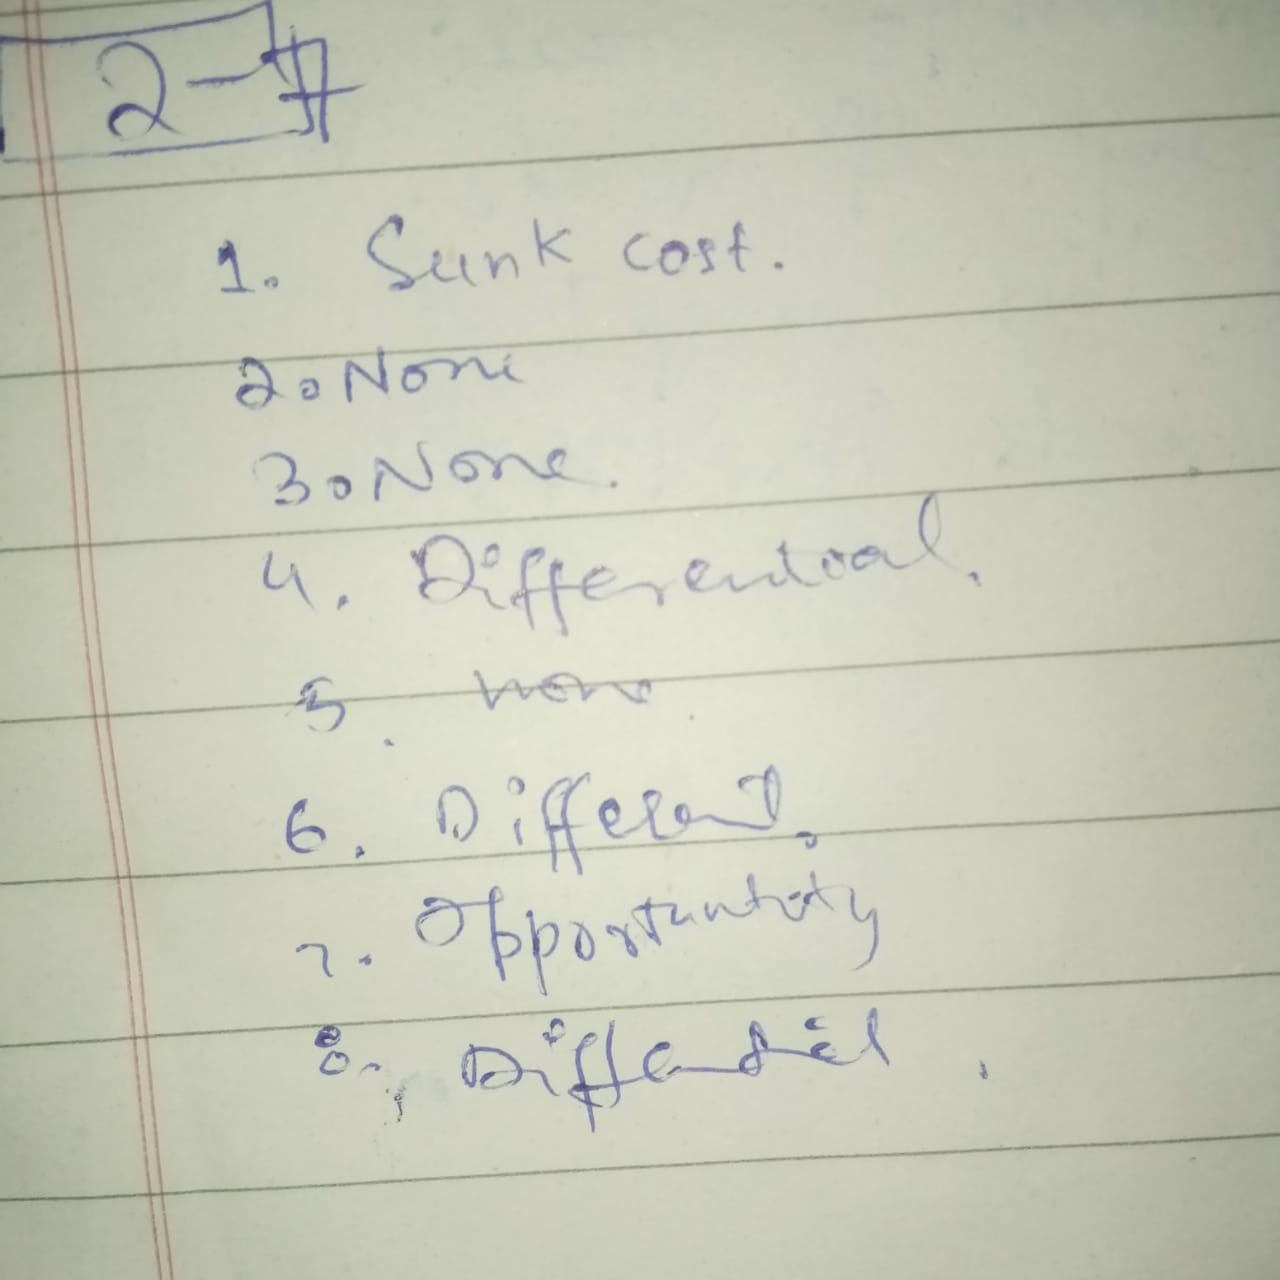 2-7
1. Sunk cost.
2. None
3. None.
4. Differential.
5. none
6. Different.
7. Opportuntity
8. Differtial.